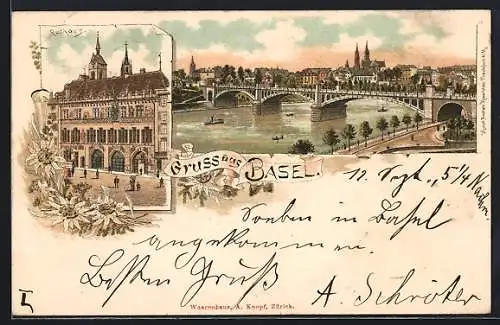 Rathaus.
Gruss aus BASEL.
11 Sept., 5 1/4 Nachm.
Soeben in Basel
angekommen.
Besten Gruß
A. Schröter
Waarenhaus, A. Knopf, Zürich.